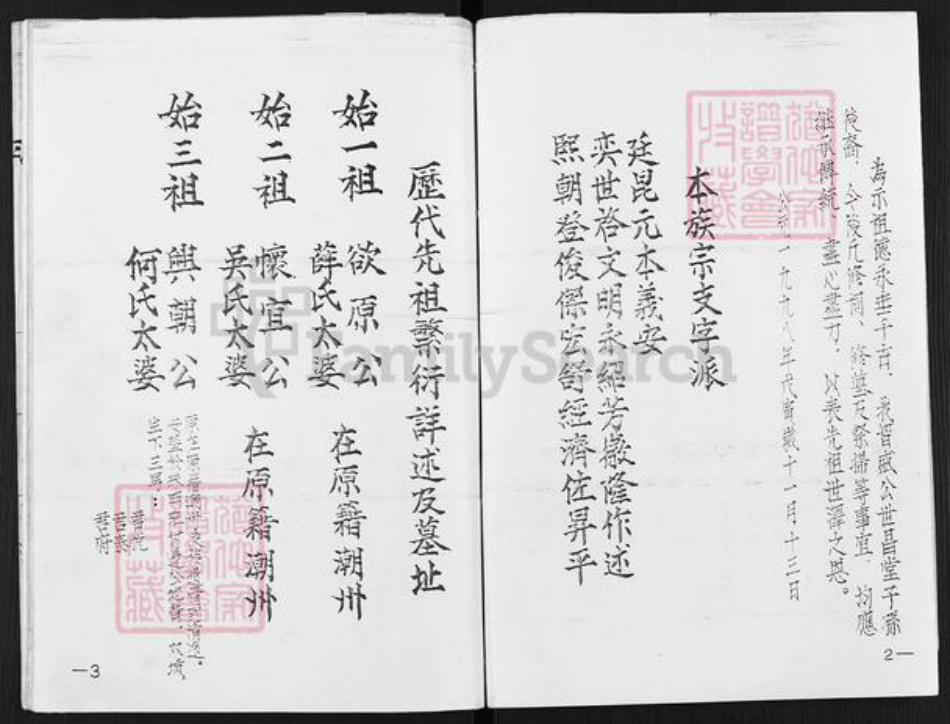 為示祖德永垂千古，我晋斌公世昌堂子孫
後裔，今後凡修祠、修墓及祭掃等事宜，均應
繼承傳統，盡心盡力，以表先祖世澤之恩。
公元一九九八年戊寅歲十一月十三日
本族宗支字派
廷昆元本義安
奕世啓文明永紹芳徽隆作述
熙朝登俊傑宏舒經濟佐昇平
2—
歷代先祖繁衍詳述及墓址
始一祖 欲原公 在原籍潮州
薛氏太婆
始二祖 懷宜公 在原籍潮州
吳氏太婆
始三祖 興朝公
何氏太婆
生下三男：
君府
—3
FamilySearch